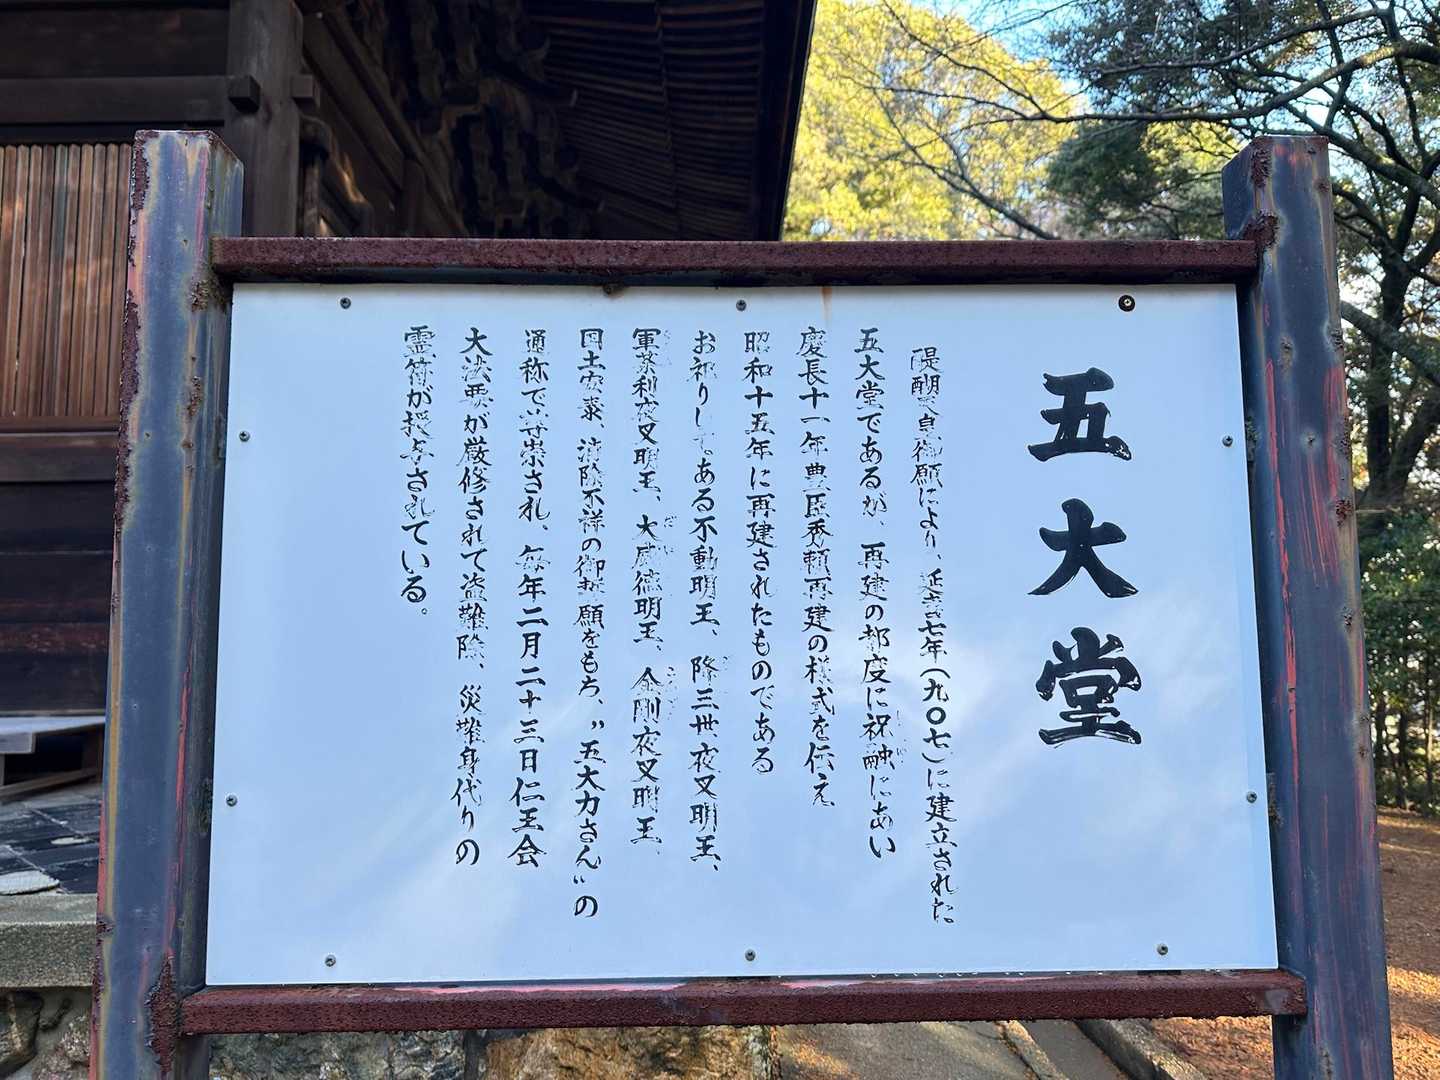 五大堂
醍醐天皇御願により、延喜七年(九〇七)に建立された
五大堂であるが、再建の都度に祝融にあい
慶長十一年豊臣秀頼再建の様式を伝え
昭和十五年に再建されたものである
お祀りしてある不動明王、降三世夜叉明王、
軍荼利夜叉明王、大威徳明王、金剛夜叉明王、
国土安泰、消除不祥の御誓願をもち、〃五大力さん〃の
通称で尊崇され、毎年二月二十三日仁王会
大法要が厳修されて盗難除、災難身代りの
霊符が授与されている。